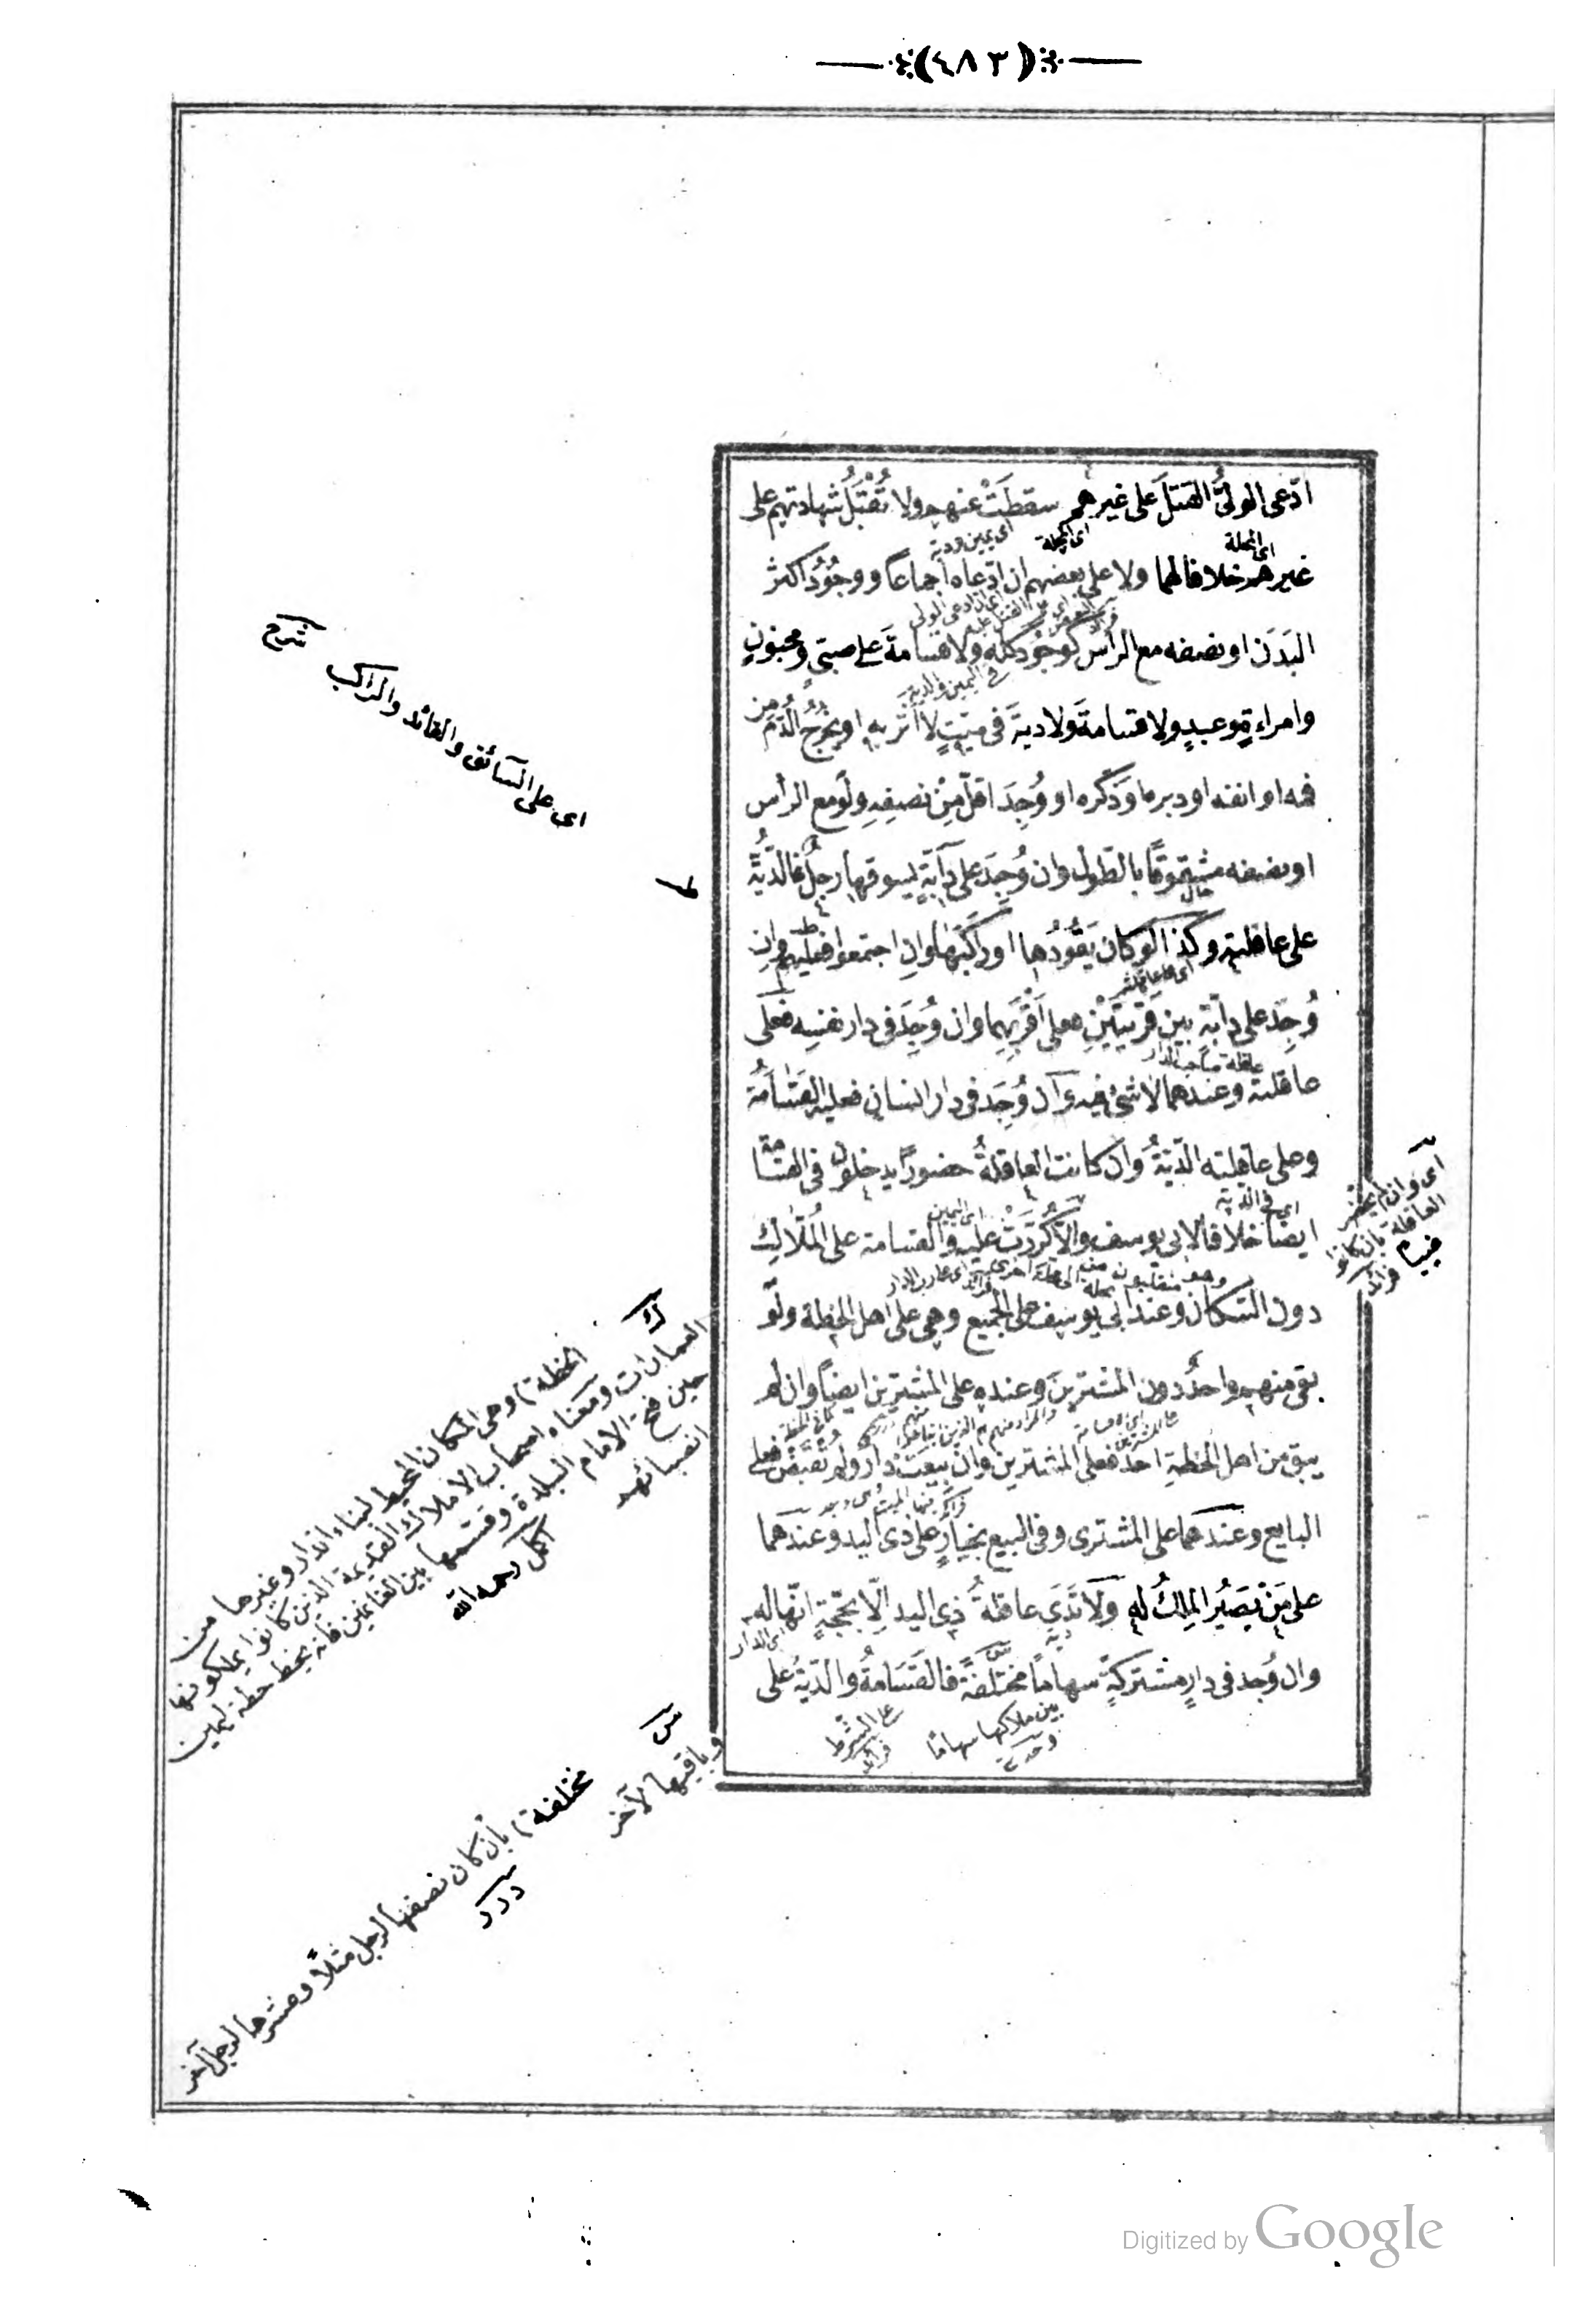 (٤٨٣)
ادّعى الولىُّ القتلَ على غيرهم سقطَتْ عنهم ولا تُقْبَلُ شهادتهم على
اى المحلة
اى المحلة
اى يمين ودية
غيرهم خلافا لهما ولا على بعضهم ان ادّعاه اجماعًا ووجُوُد اكثر
البَدَن او نصفه مع الرأس كوجُود كلّه ولا قسامةَ على صبىّ ومجنونٍ
فى اليمين والدية
وامراءةٍ وعبدٍ ولا قسامةَ ولا ديةَ فى ميّتٍ لا اثر به او يخرجُ الدّمُ من
فمه او انفه او دبره او ذكره او وُجِدَ اقلّ مِنْ نصفِهِ ولو مع الرأس
او نصفه مشقوقًا بالطول وان وُجِدَ على دآبّةٍ يسوقها رجلٌ فالدّيَةُ
على عاقلته وكذا لو كان يَقُوُدُها او راكبَها وانِ اجتمعوا فعليهم وان
وُجِدَ على دابّةٍ بين قَرْيَتَيْنِ فعلى اَقْرَبِهِما وان وُجِدَ فى دار نفسِه فعلى
عاقلة صاحب الدار
عاقلته وعندهما لا شئ فيه وان وُجِدَ فى دار انسانٍ فعليه القَسَامَة
وعلى عاقِلته الدّيَةُ وان كانت العاقلةُ حضورًا يدخلون فى القسامة
اى فى الدية
ايضًا خلافا لابى يوسف والّا كُرّرَتْ عليه والقسامة على المُلّاكِ
دون السّكان وعند ابى يوسف على الجميع وهى على اهل الخطة ولو
بقى منهم واحدٌ دون المشترينَ وعنده على المشترين ايضًا وان لم
يبق من اهل الخطةِ احدٌ فعلى المشترين وان بيعَتْ دارٌ ولم تُقْبَضْ فعلى
البايع وعندهما على المشترى وفى البيع بخيارٍ على ذى اليد وعندهما
على مَنْ يَصيُر المِلكُ له ولا تَدَى عاقلةُ ذِى اليد الّا بحُجّةٍ انّها له
اى الدار
دية
وان وُجد فى دارٍ مشتركةٍ سهامًا مختلفةً فالقَسَامةُ والدّيةُ على
بين ملاكها سهامًا
شرح
اى على السائق والقائد والراكب
اى وان لم يحضر
العاقلة بان كانوا
غيبا فرائد
الخطة) وهى المكان المحيط لبناء الدار وغيرها من
العمارات ومعناه اصحاب الاملاك القديمة الذين كانوا يملكونها
حين فتح الامام البلدة وقسمها بين الغانمين فانه يخط خطة ليمين
انصبائهم
اكمل رحمه الله
مختلفة) بأن كان نصفها لرجل مثلاً وعشرها لرجل آخر
وباقيها لآخر
درر
Digitized by Google